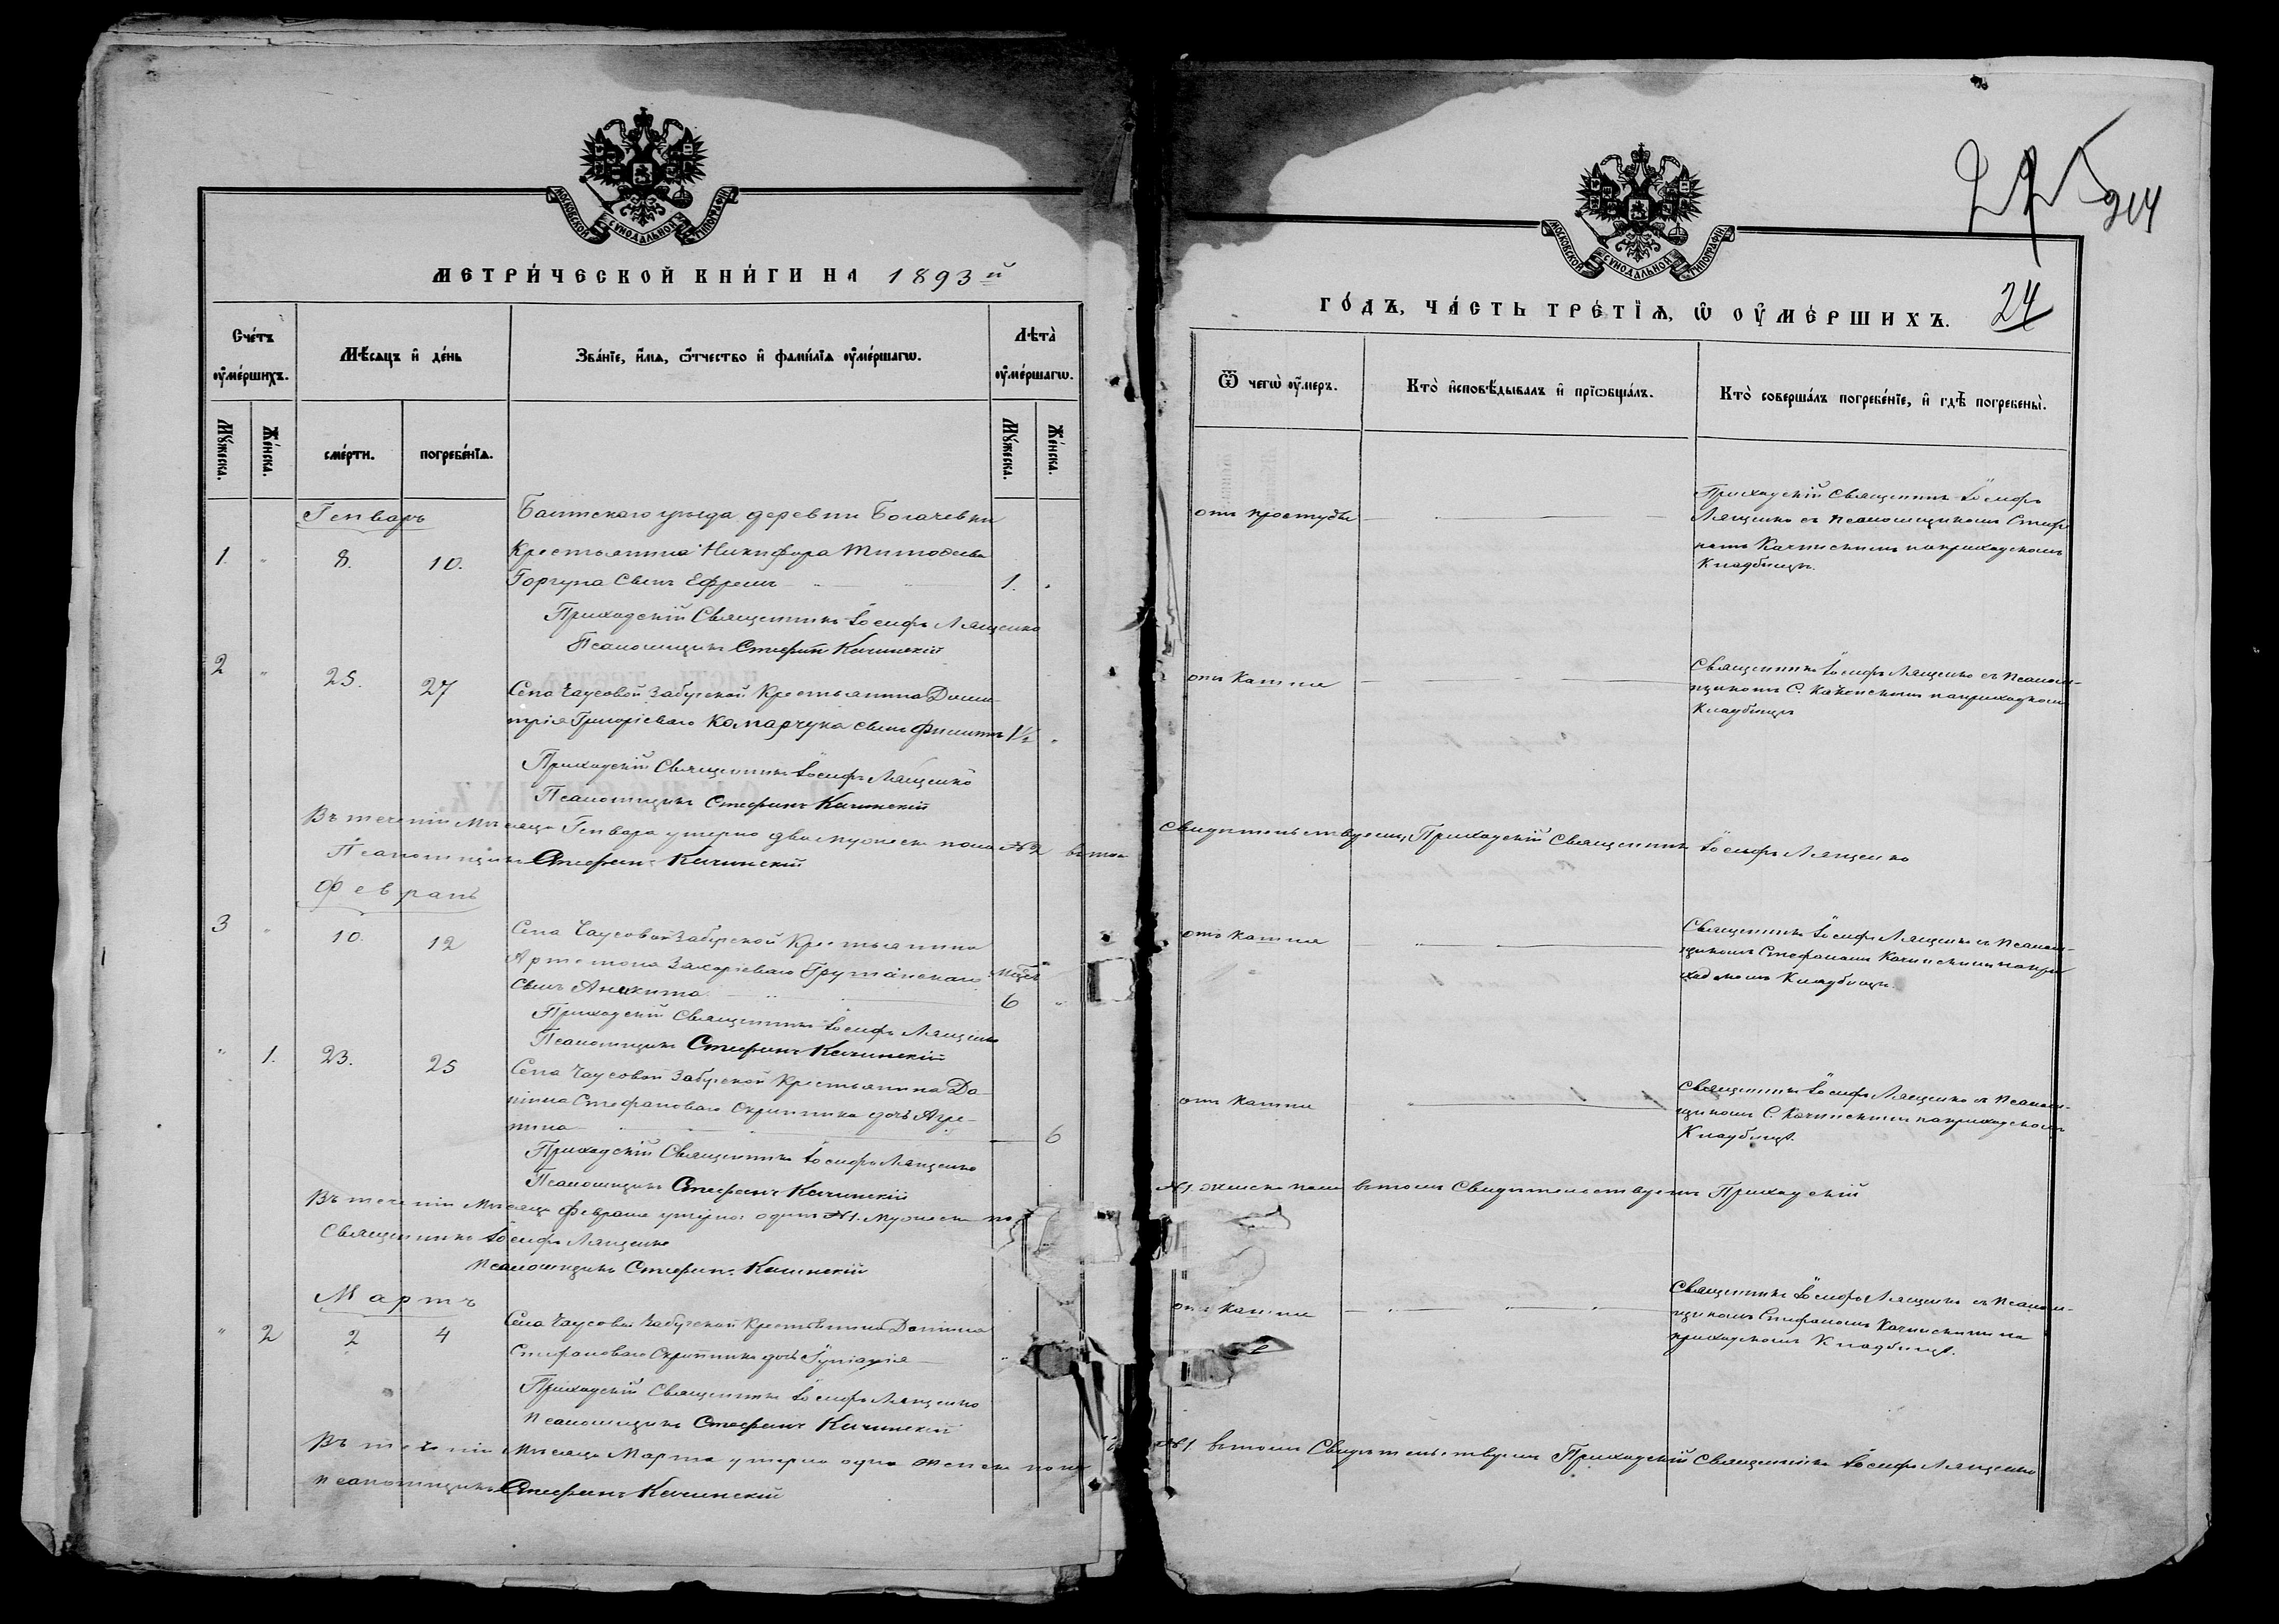 МОСКОВСКОЙ СУНОДАЛЬНОЙ ТИПОГРАФІИ
МЕТРИ́ЧЕСКОЙ КНИ́ГИ НА 1893 й
Сче́тъ ᲂу҆ме́ршихъ.
Мѣ́сяцъ и҆ де́нь
Зва́нїе, и҆́мѧ, ѻ҆́тчество и҆ фами́лїѧ ᲂу҆ме́ршагѡ.
Лѣ́та ᲂу҆ме́ршагѡ.
Мꙋ́жеска.
Же́нска.
сме́рти.
погребе́нїѧ.
Мꙋ́жеска.
Же́нска.
Генварь
Балтскаго уѣзда деревни Богачевки
1. " 8. 10. Крестьянина Никифора Тимофеева
Горгула сынъ Ефремъ 1. "
Приходскій Священникъ Іосифъ Лященко
Псаломщикъ Стефанъ Качинскій
2 " 25. 27 Села Чаусовой Забугской Крестьянина Дими-
трія Григоріеваго Комарчука сынъ Филиппъ 1½ "
Приходскій Священникъ Іосифъ Лященко
Псаломщикъ Стефанъ Качинскій
Въ теченіи Мѣсяца Генваря умерло два мужеска пола №2 въ томъ
Псаломщикъ Стефанъ Качинскій
Февраль
3 " 10. 12 Села Чаусовой Забугской Крестьянина
Артемона Захаріеваго
сынъ Аникита 6 "
Приходскій Священникъ Іосифъ Лященко
Псаломщикъ Стефанъ Качинскій
" 1. 23. 25 Села Чаусовой Забугской Крестьянина Да-
ніила Стефановаго Скрипника дочь Агре-
пина 6
Приходскій Священникъ Іосифъ Лященко
Псаломщикъ Стефанъ Качинскій
Въ теченіи Мѣсяца Февраля умерло: одинъ №1. Мужеска
Священникъ Іосифъ Лященко
Псаломщикъ Стефанъ Качинскій
Мартъ
" 2 2 4 Села Чаусовой Забугской Крестьянина Даніила
Стефановаго Скрипника дочь
Приходскій Священникъ Іосифъ Лященко
Псаломщикъ Стефанъ Качинскій
Въ теченіи Мѣсяца Марта умерло одна женска пола
Псаломщикъ Стефанъ Качинскій
214
МОСКОВСКОЙ СУНОДАЛЬНОЙ ТИПОГРАФІИ
ГО́ДЪ, ЧА́СТЬ ТРЕ́ТЇѦ, Ѡ҆ ОУ҆МЕ́РШИХЪ. 24
Ѿ чегѡ̀ ᲂу҆́меръ.
Кто̀ и҆сповѣ́дывалъ и҆ прїѡбща́лъ.
Кто̀ соверша́лъ погребе́нїе, и҆ гдѣ̀ погребены̀.
отъ простуды
Приходскій Священникъ Іосифъ
Лященко съ псаломщикомъ Стефа-
номъ Качинскимъ на приходскомъ
Кладбищѣ.
отъ Кашля
Священникъ Іосифъ Лященко съ псалом-
щикомъ С. Качинскимъ на приходскомъ
Кладбищѣ
свидѣтельствуемъ, Приходскій Священникъ Іосифъ Лященко
отъ кашля
Священникъ Іосифъ Лященко съ псалом-
щикомъ Стефаномъ Качинскимъ на при-
ходскомъ Кладбищѣ.
отъ Кашля
Священникъ Іосифъ Лященко съ псалом-
щикомъ С. Качинскимъ на приходскомъ
Кладбищѣ.
№1. женска пола въ томъ Свидѣтельствуемъ Приходскій
отъ Кашля
Священникъ Іосифъ Лященко съ псалом-
щикомъ Стефаномъ Качинскимъ на
приходскомъ Кладбищѣ.
№1 въ томъ Свидѣтельствуемъ Приходскій Священникъ Іосифъ Лященко